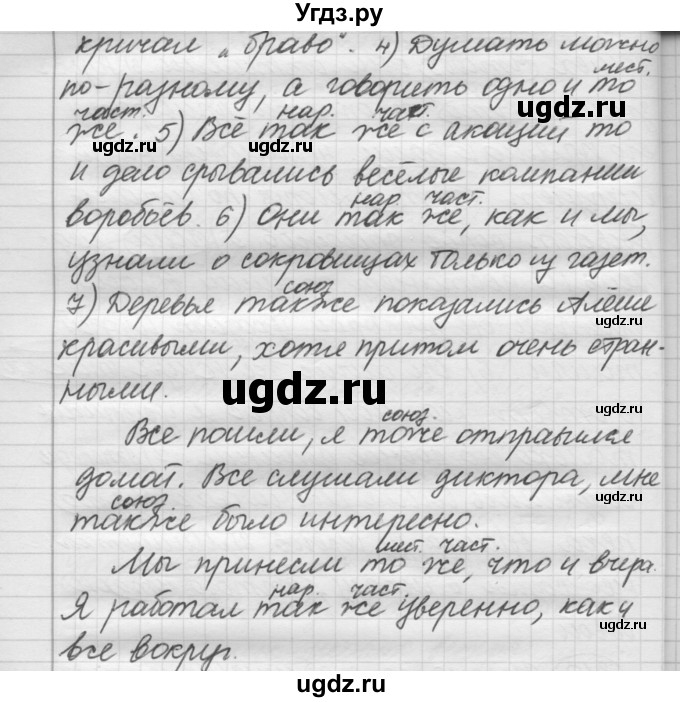 Угдз.ру
кричал „браво“. 4) Думать можно
мест.
по-разному, а говорить одно и то
част. нар. част.
же. 5) Всё так же с акаций то
и дело срывались весёлые компании
нар. част.
воробьёв. 6) Они так же, как и мы,
узнали о сокровищах только из газет.
союз
7) Деревья также показались Алёше
красивыми, хотя притом очень стран-
ными.
союз.
Все пошли, я тоже отправился
домой. Все слушали диктора, мне
союз.
также было интересно.
мест. част.
Мы принесли то же, что и вчера.
нар. част.
Я работал так же уверенно, как и
все вокруг.
ugdz.ru
ugdz.ru
ugdz.ru
ugdz.ru
ugdz.ru
ugdz.ru
ugdz.ru
ugdz.ru
ugdz.ru
ugdz.ru